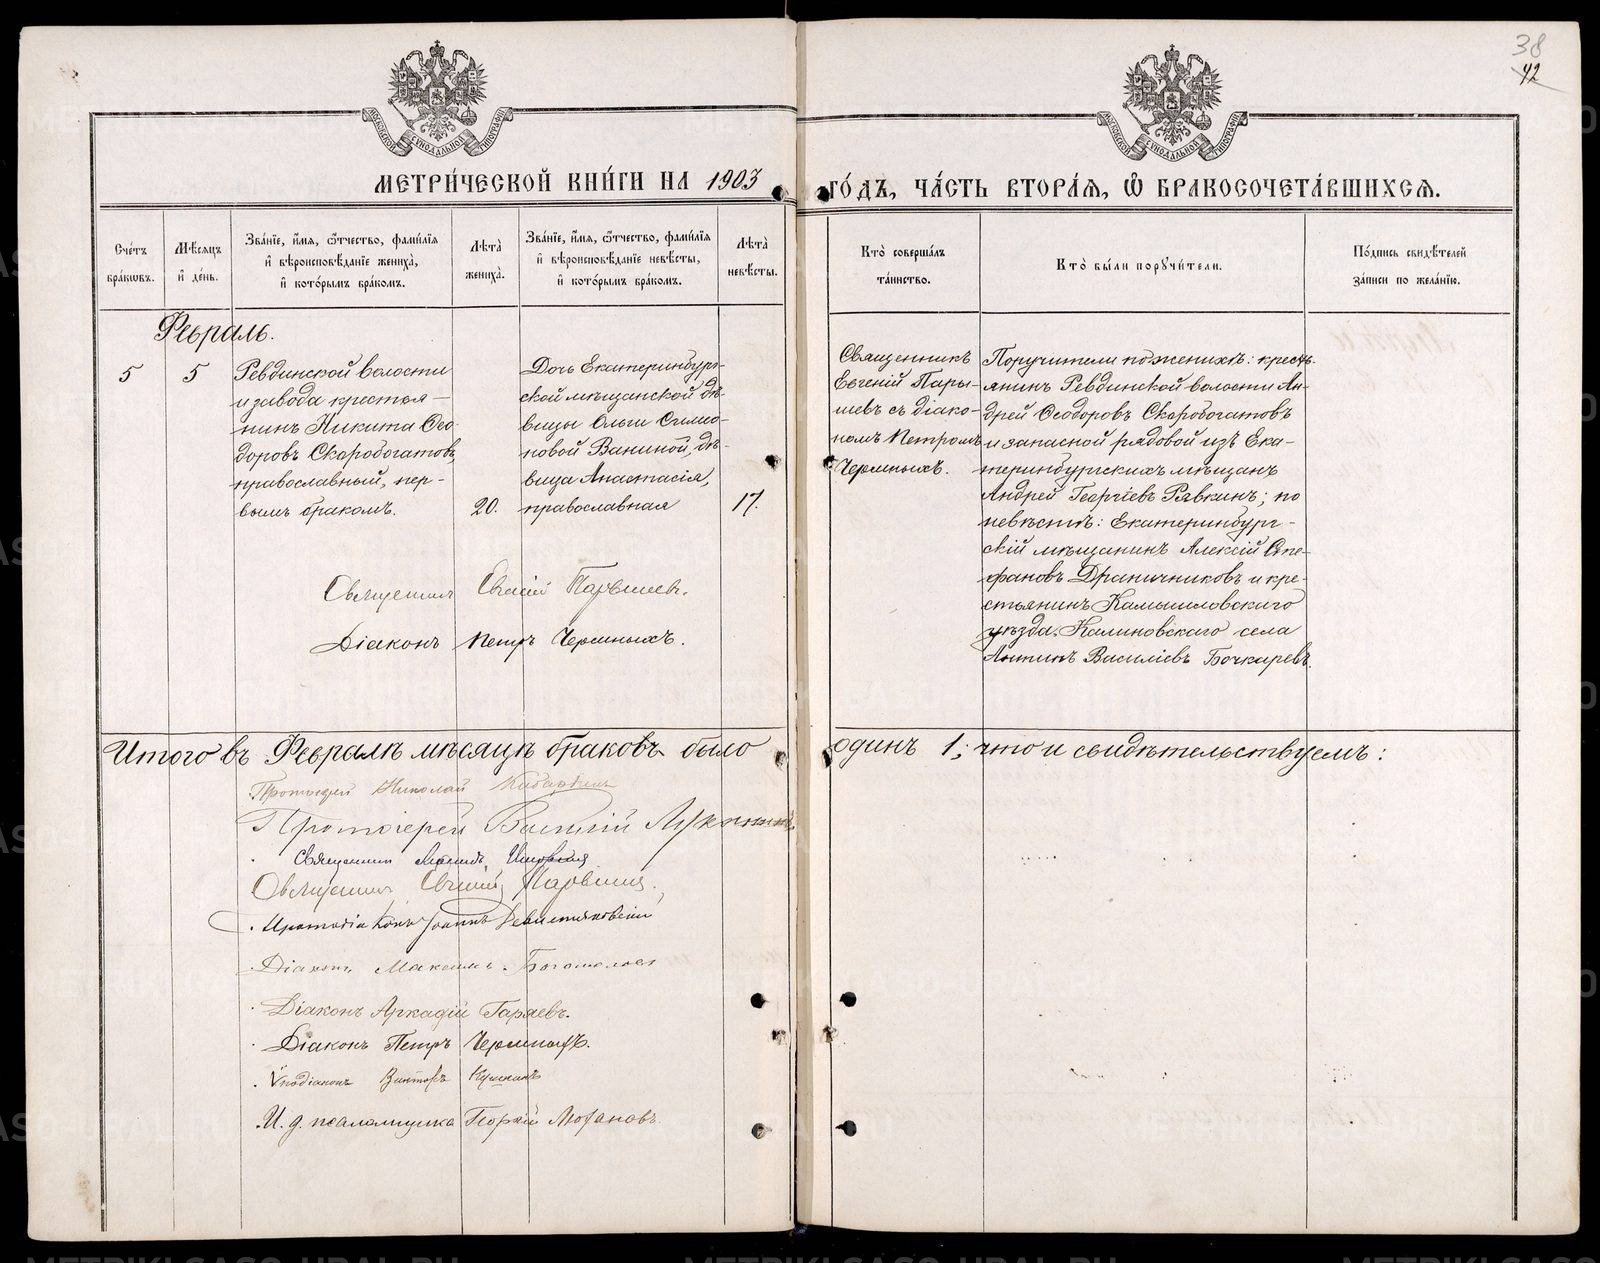 38
42
МОСКОВСКОЙ СѴНОДАЛЬНОЙ ТИПОГРАФІИ
МОСКОВСКОЙ СѴНОДАЛЬНОЙ ТИПОГРАФІИ
МЕТРИ́ЧЕСКОЙ КНИ́ГИ НА 1903 ГО́ДЪ, ЧА́СТЬ ВТОРА́Ѧ, Ѿ БРАКОСОЧЕТА́ВШИХСѦ.
Сче́тъ
бра́кѡвъ.
Мѣ́сѧцъ
и҆ де́нь.
Зва́нїе, и҆́мѧ, ѻ҆́тчество, фами́лїѧ
и҆ вѣроисповѣ́данїе жениха̀,
и҆ кото́рымъ бра́комъ.
Лѣ́та̀
жениха̀.
Зва́нїе, и҆́мѧ, ѻ҆́тчество, фами́лїѧ
и҆ вѣроисповѣ́данїе невѣ́сты,
и҆ кото́рымъ бра́комъ.
Лѣ́та̀
невѣ́сты.
Кто̀ соверша́лъ
та́инство.
Кто̀ бы́ли порꙋчи́тели.
По́дпись свидѣ́телей
за́писи по жела́нїю.
Февраль.
5
5
Ревдинской волости
и завода крестья-
нинъ Никита Ѳео-
доровъ Скоробогатовъ,
православный, пер-
вымъ бракомъ.
20.
Дочь Екатеринбург-
ской мѣщанской дѣ-
вицы Ольги Симео-
новой Ваниной, дѣ-
вица Анастасія,
православная
17.
Священникъ
Евгеній Пары-
шевъ съ діако-
номъ Петромъ
Черемныхъ.
Поручители по женихѣ: кресть-
янинъ Ревдинской волости Ан-
дрей Ѳеодоровъ Скоробогатовъ
и запасной рядовой изъ Ека-
теринбургскихъ мѣщанъ
Андрей Георгіевъ Рявкинъ; по
невѣстѣ: Екатеринбург-
скій мѣщанинъ Алексій Сте-
фановъ Драничниковъ и кре-
стьянинъ Камышловскаго
уѣзда, Калиновскаго села
Антипъ Василіевъ Бочкаревъ.
Священникъ Евгеній Парышевъ.
Діаконъ Петръ Черемныхъ.
Итого въ Февралѣ мѣсяцѣ браковъ было одинъ 1; что и свидѣтельствуемъ:
Протоіерей Николай
Протоіерей Василій
Священникъ
Священникъ Евгеній Парышевъ.
Протодіаконъ Іоаннъ
Діаконъ Максимъ Богомоловъ
Діаконъ Аркадій Гаряевъ.
Діаконъ Петръ Черемныхъ.
Ѵподіаконъ Викторъ
И. д. псаломщика Георгій